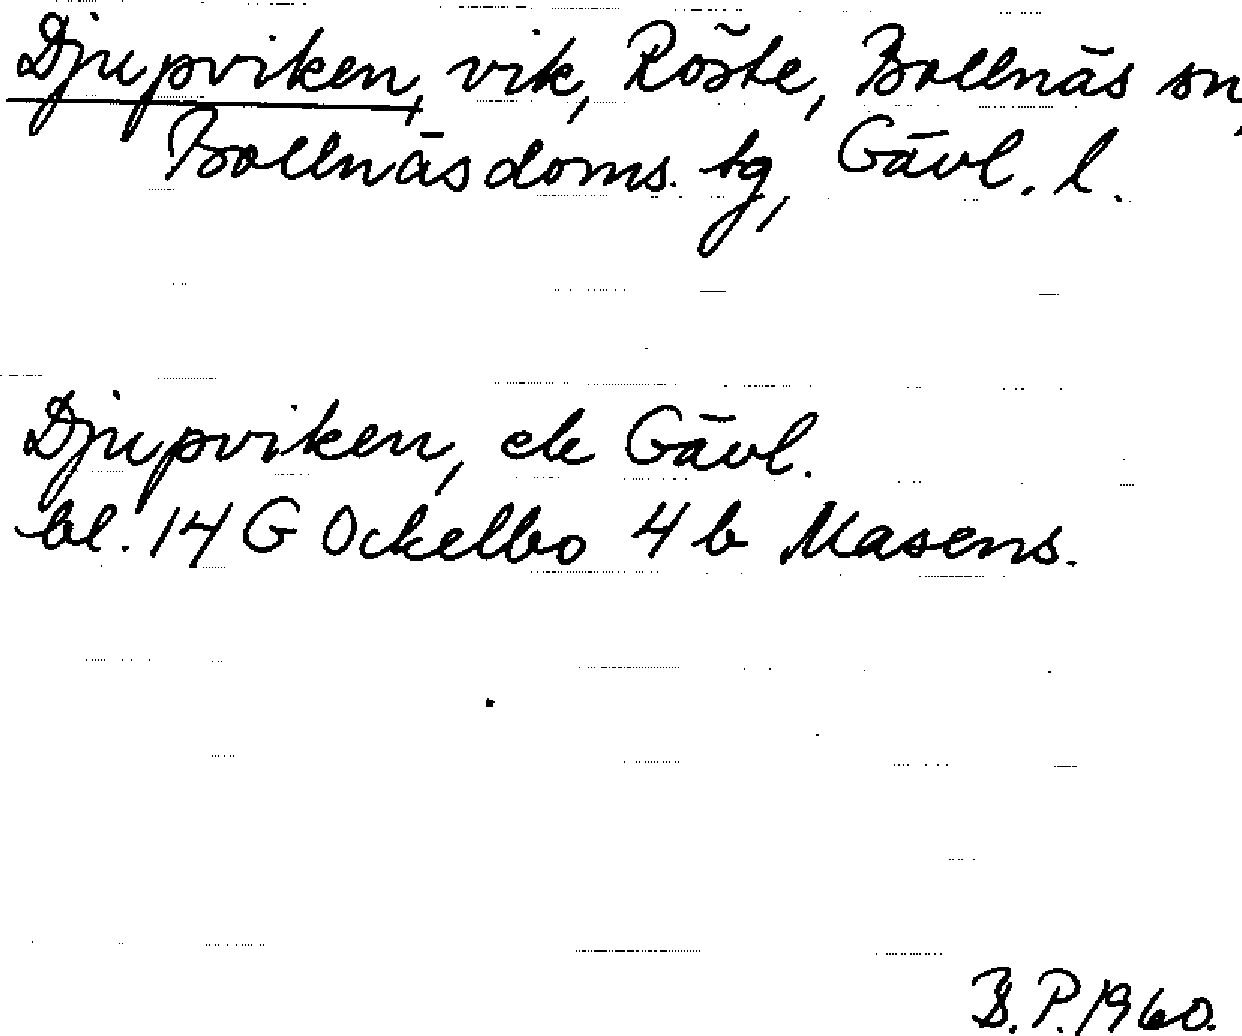 Djupviken, vik, Röste, Bollnäs sn,
Bollnäs doms. tg, Gävl. l.
Djupviken, ek Gävl.
bl. 14 G Ockelbo 4 b Masens.
B. P. 1960.